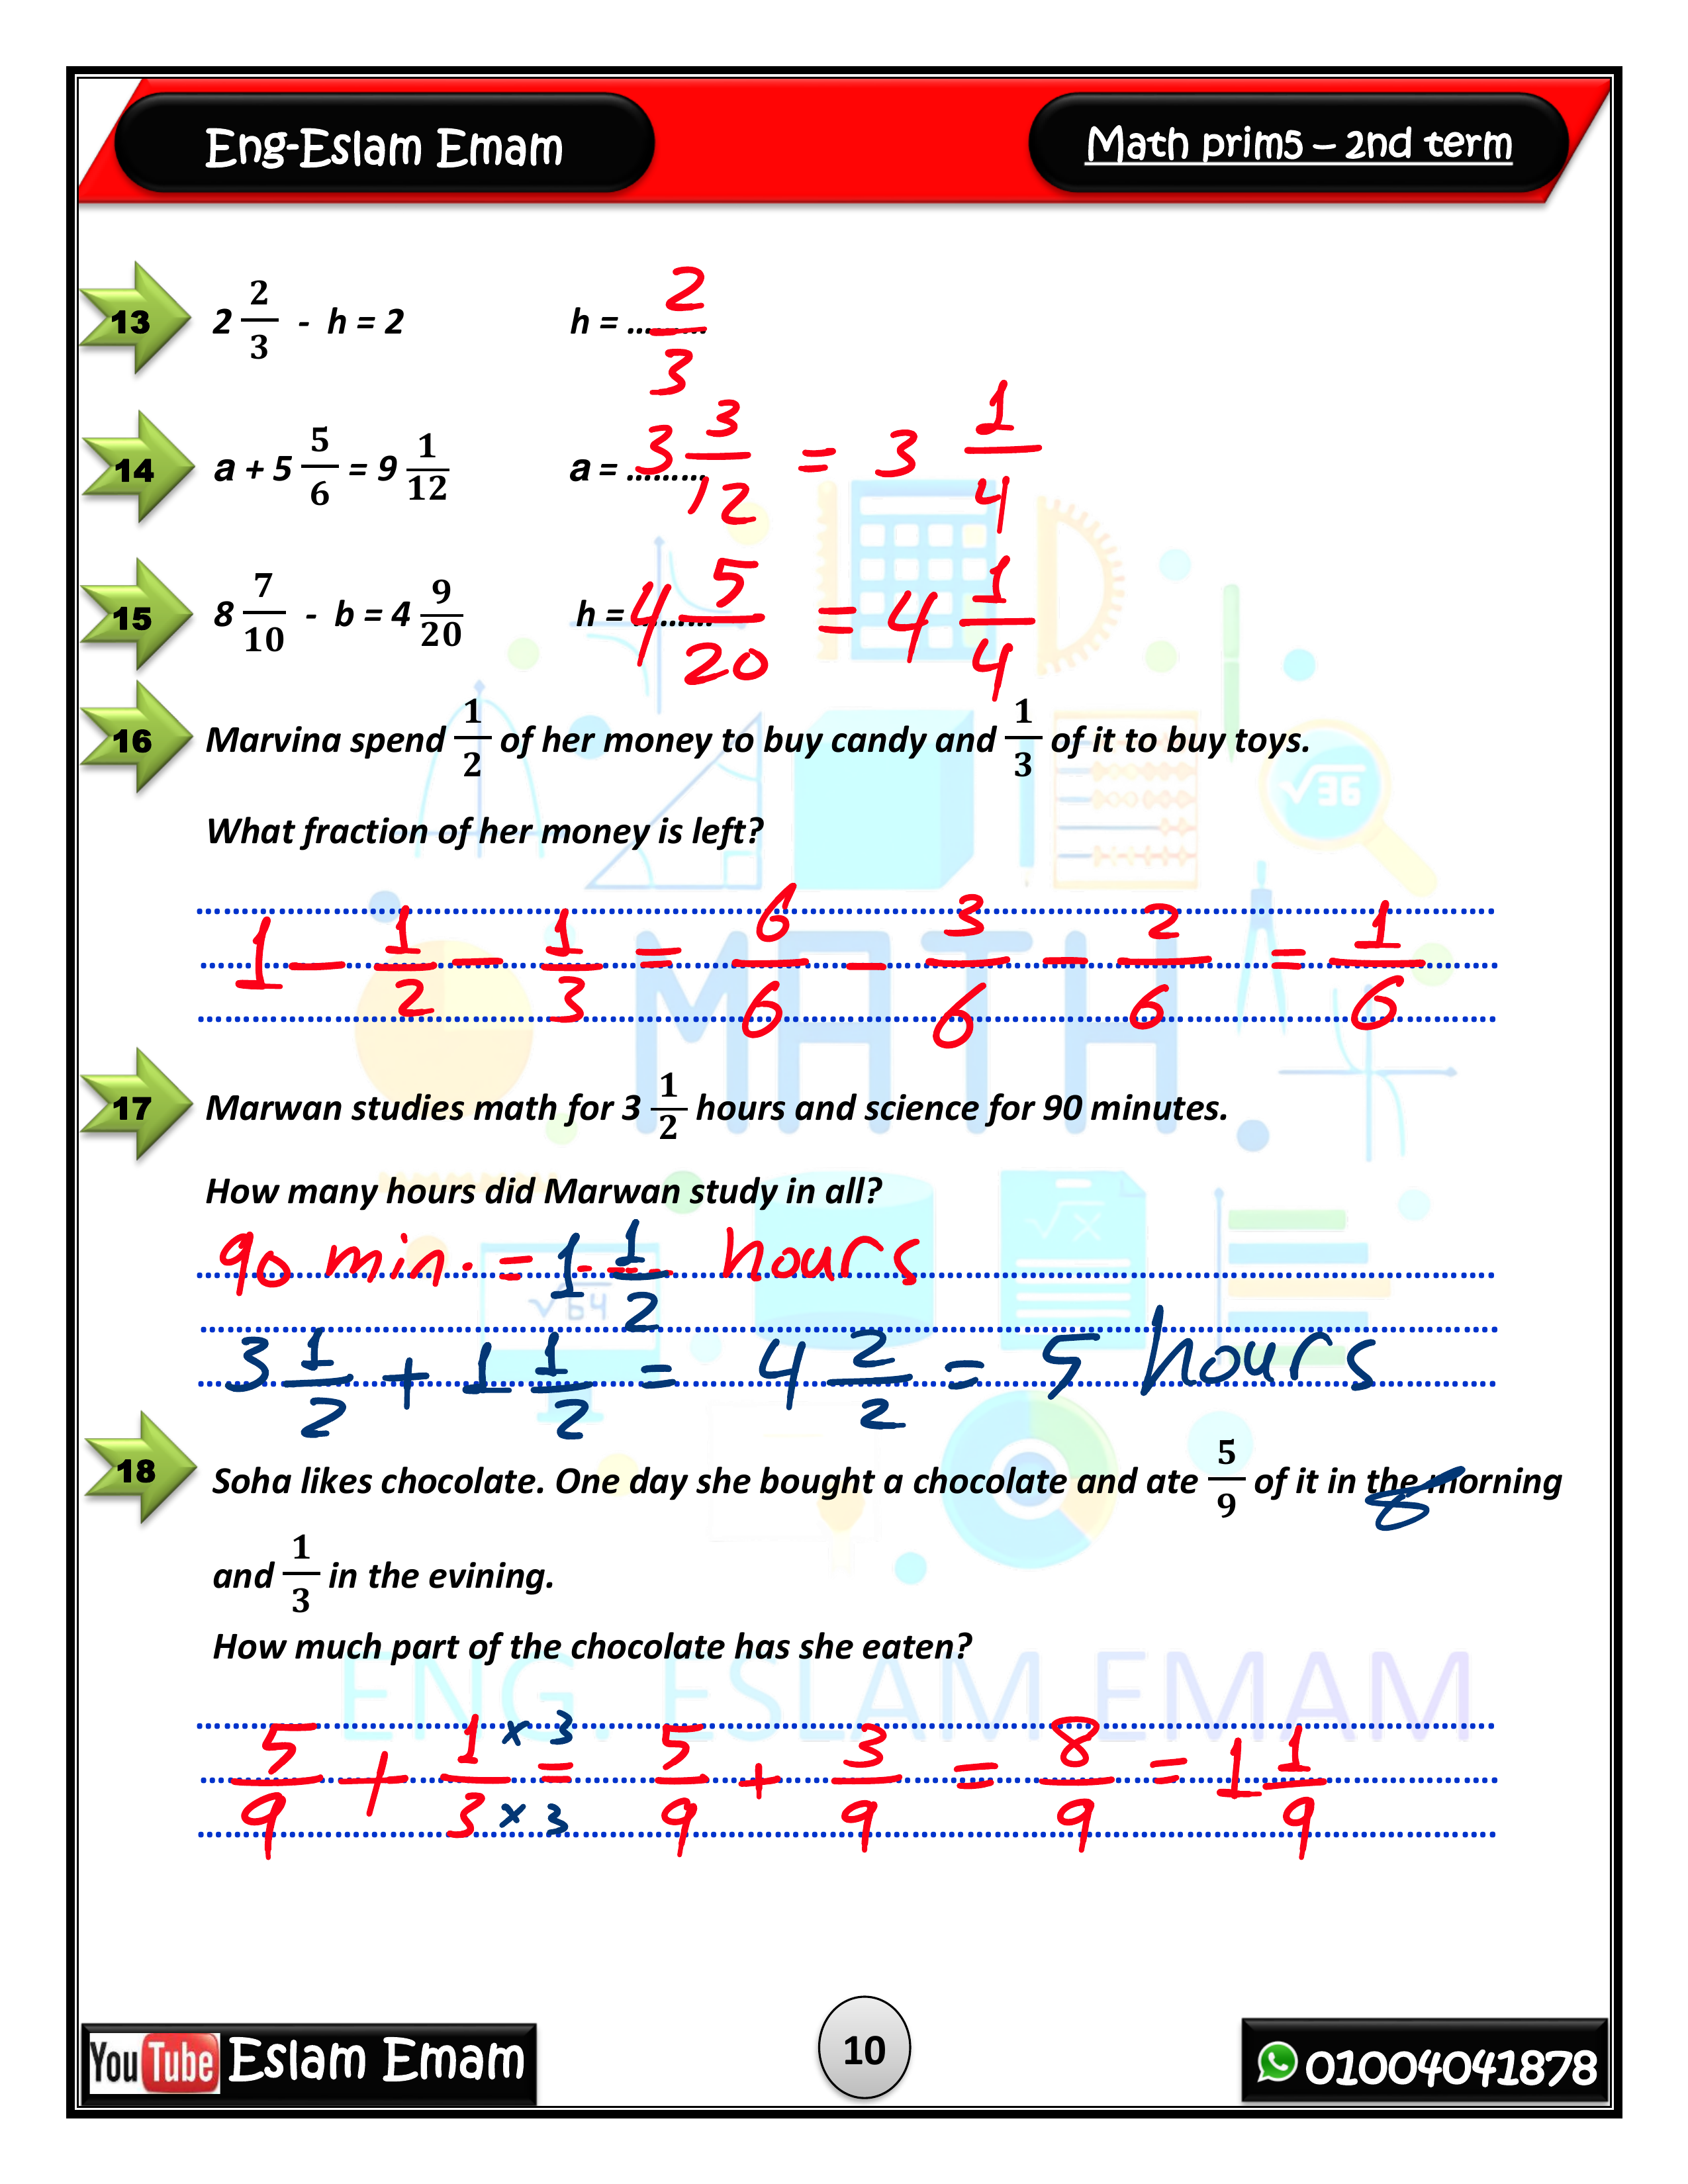 Eng-Eslam Emam
Math prim5 – 2nd term
13 2 2/3 - h = 2 h = ......... 2/3
14 a + 5 5/6 = 9 1/12 a = ......... 3 3/12 = 3 1/4
15 8 7/10 - b = 4 9/20 h = ......... 4 5/20 = 4 1/4
16 Marvina spend 1/2 of her money to buy candy and 1/3 of it to buy toys.
What fraction of her money is left?
1 - 1/2 - 1/3 = 6/6 - 3/6 - 2/6 = 1/6
MATH
17 Marwan studies math for 3 1/2 hours and science for 90 minutes.
How many hours did Marwan study in all?
90 min. = 1 1/2 hours
3 1/2 + 1 1/2 = 4 2/2 = 5 hours
18 Soha likes chocolate. One day she bought a chocolate and ate 5/9 of it in the morning
8
and 1/3 in the evining.
How much part of the chocolate has she eaten?
ENG. ESLAM EMAM
5/9 + 1/3 × 3 × 3 = 5/9 + 3/9 = 8/9 = 1 1/9
√36
√x
√64
YouTube Eslam Emam
10
01004041878